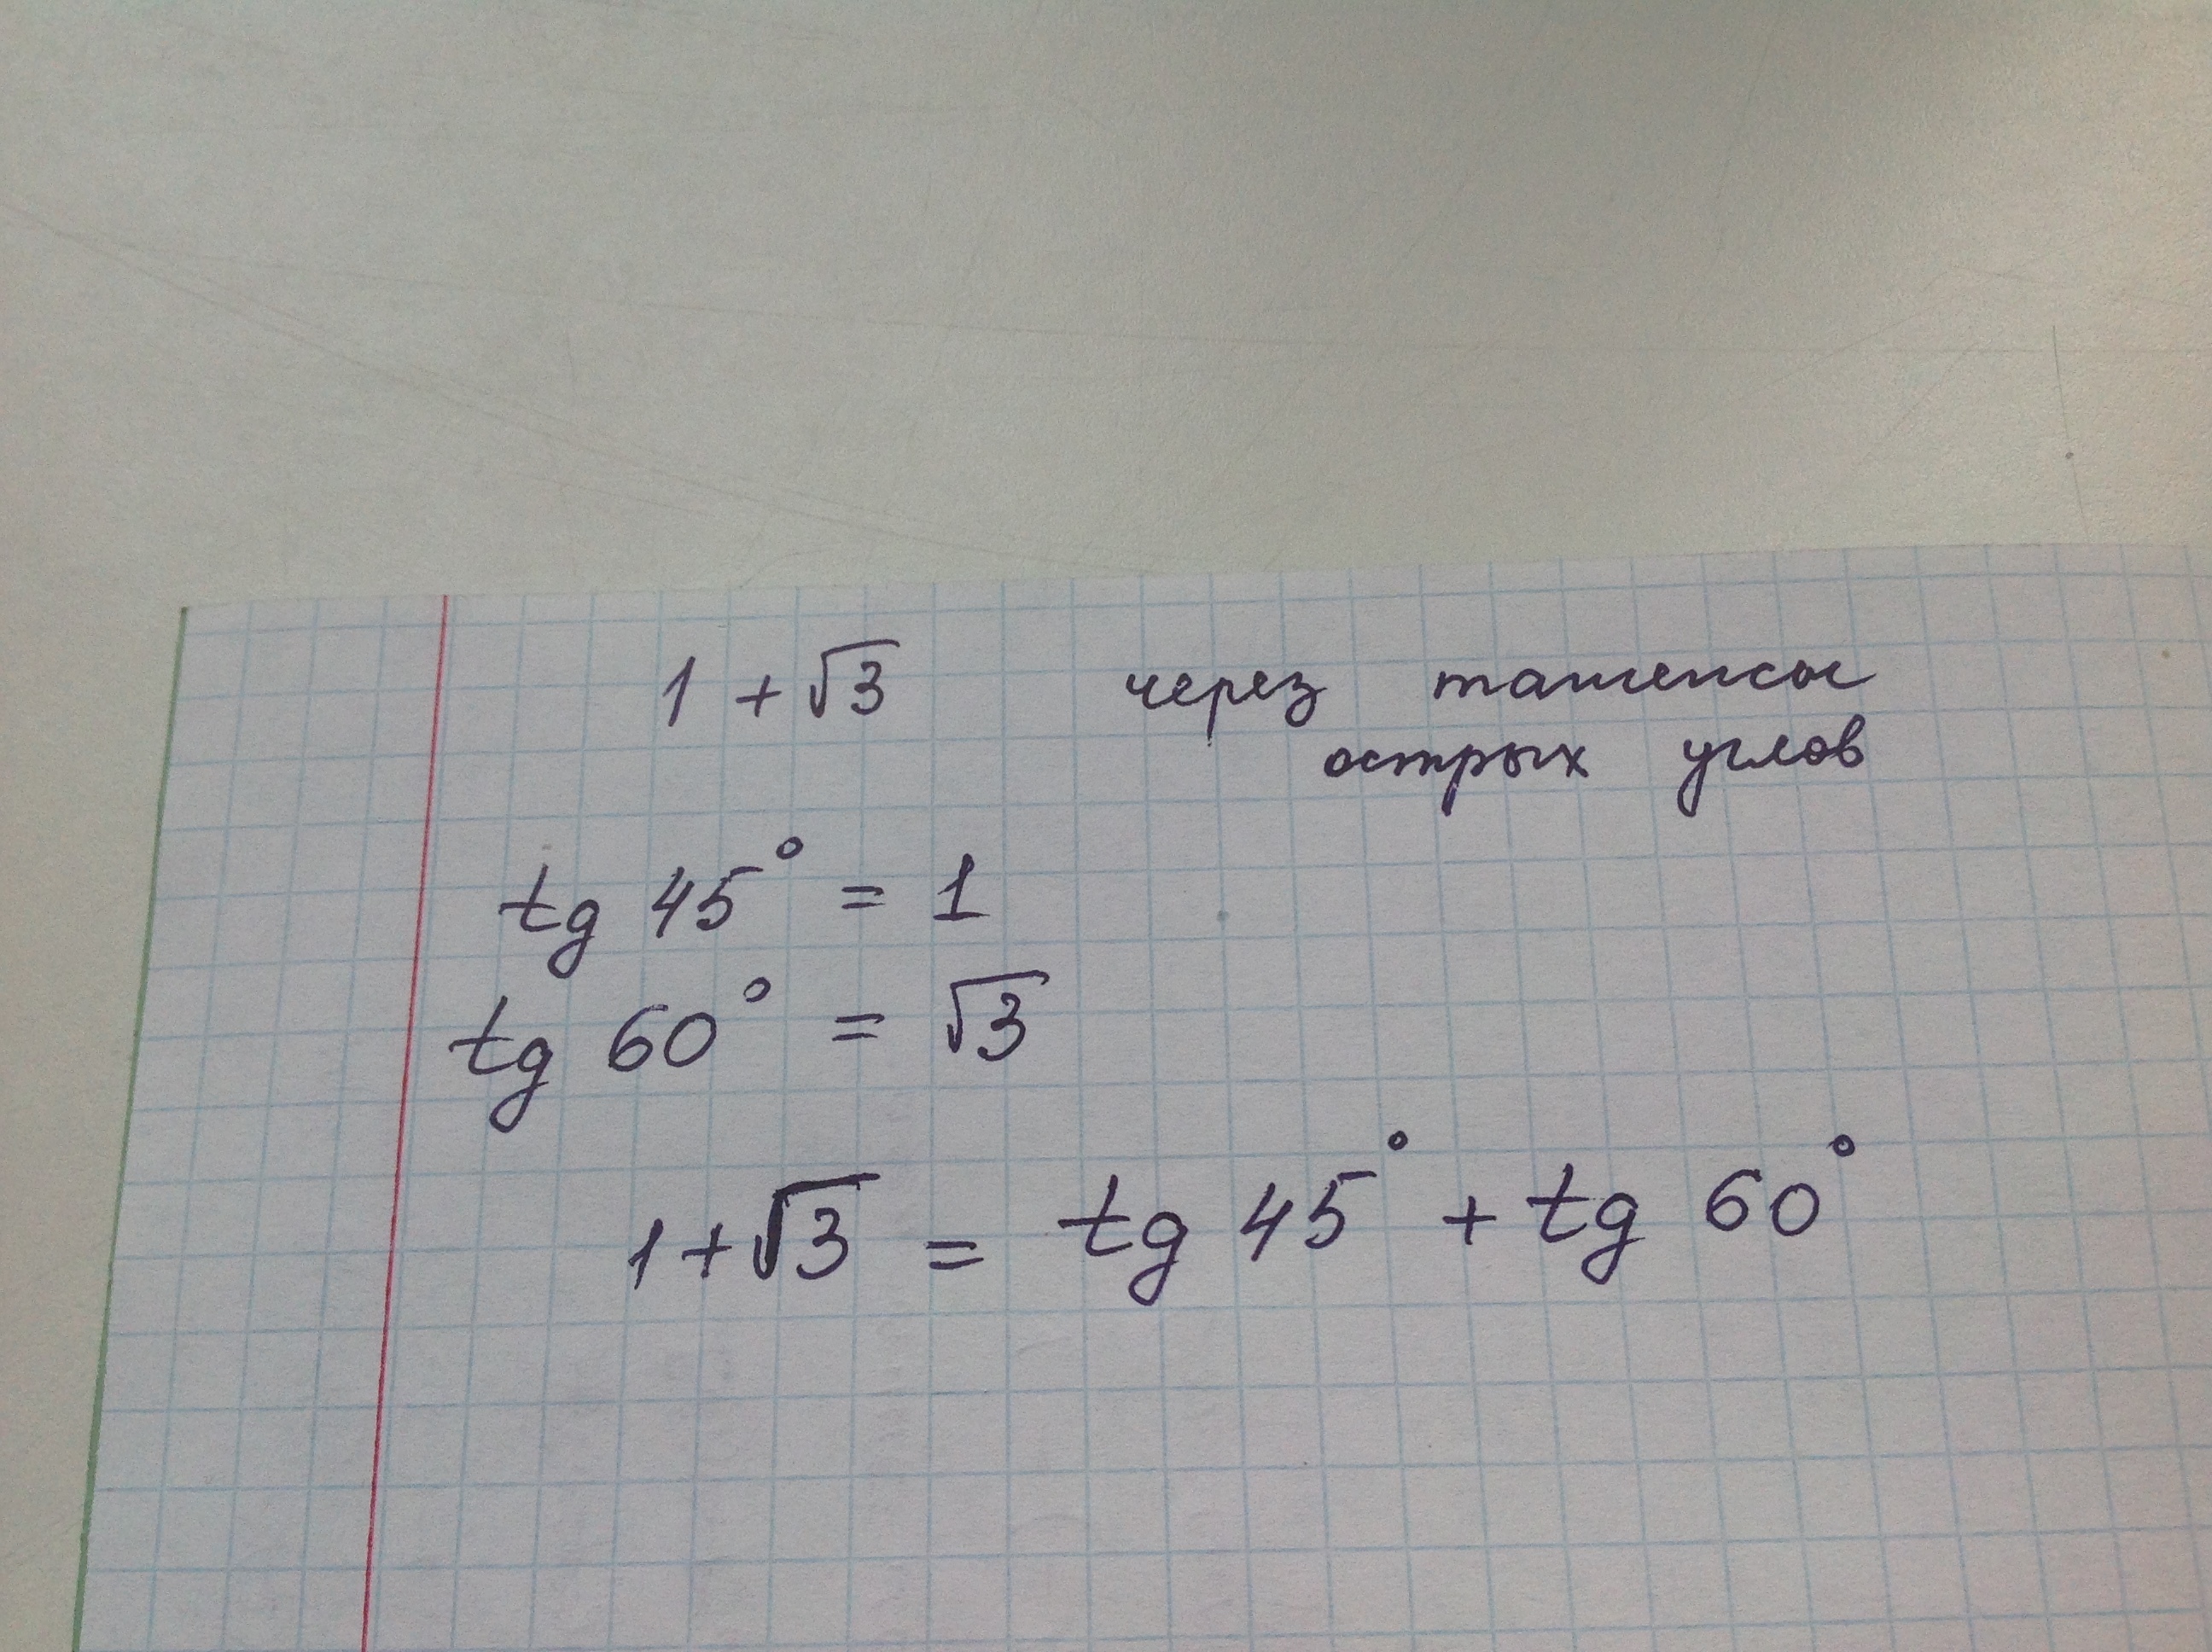 1 + √3 через тангенсы
острых углов
tg 45° = 1
tg 60° = √3
1 + √3 = tg 45° + tg 60°